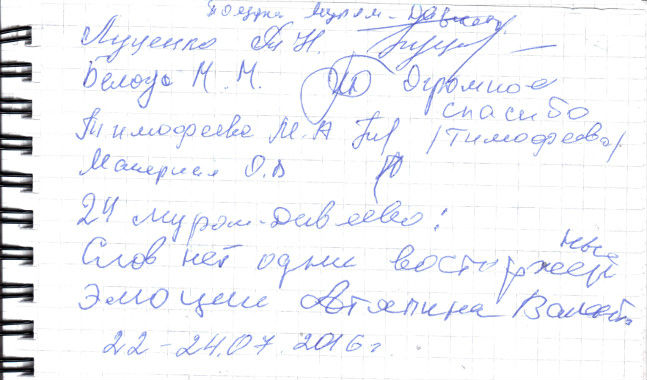 Поездка Муром-Дивеево
Луценко Т Н.
Белоуо М. М. Огромное
спасибо
Тимофеева М. А /Тимофеева/
Материал О.В
24 Муром-Дивеево:
Слов нет одни восторженные
Эмоции Валент
22-24.07.2016г.